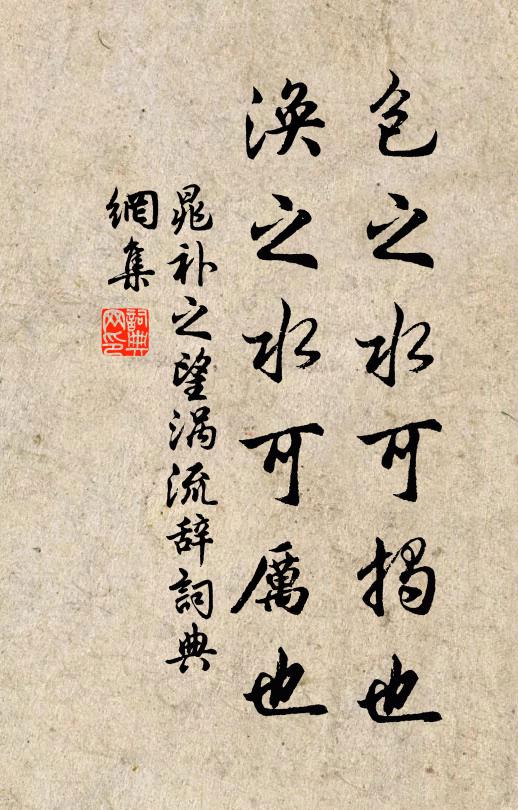 包之水可揭也
涣之水可厲也
晁补之望涡流辞詞典
網集
詞典
网印